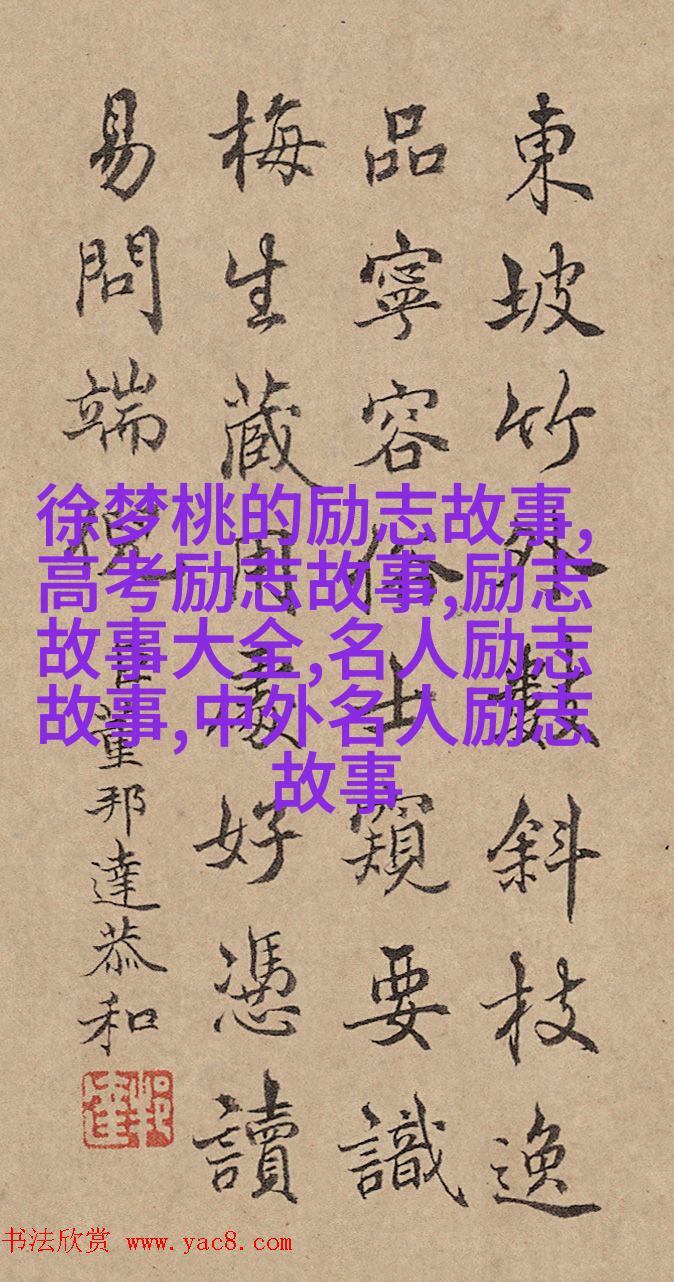 東坡竹外數斜枝逸
品寧容俗士窺要識
梅生藏用處好憑讀
易問端倪
臣董邦達恭和
徐梦桃的励志故事,
高考励志故事,励志
故事大全,名人励志
故事,中外名人励志
故事
书法欣赏 www.yac8.com